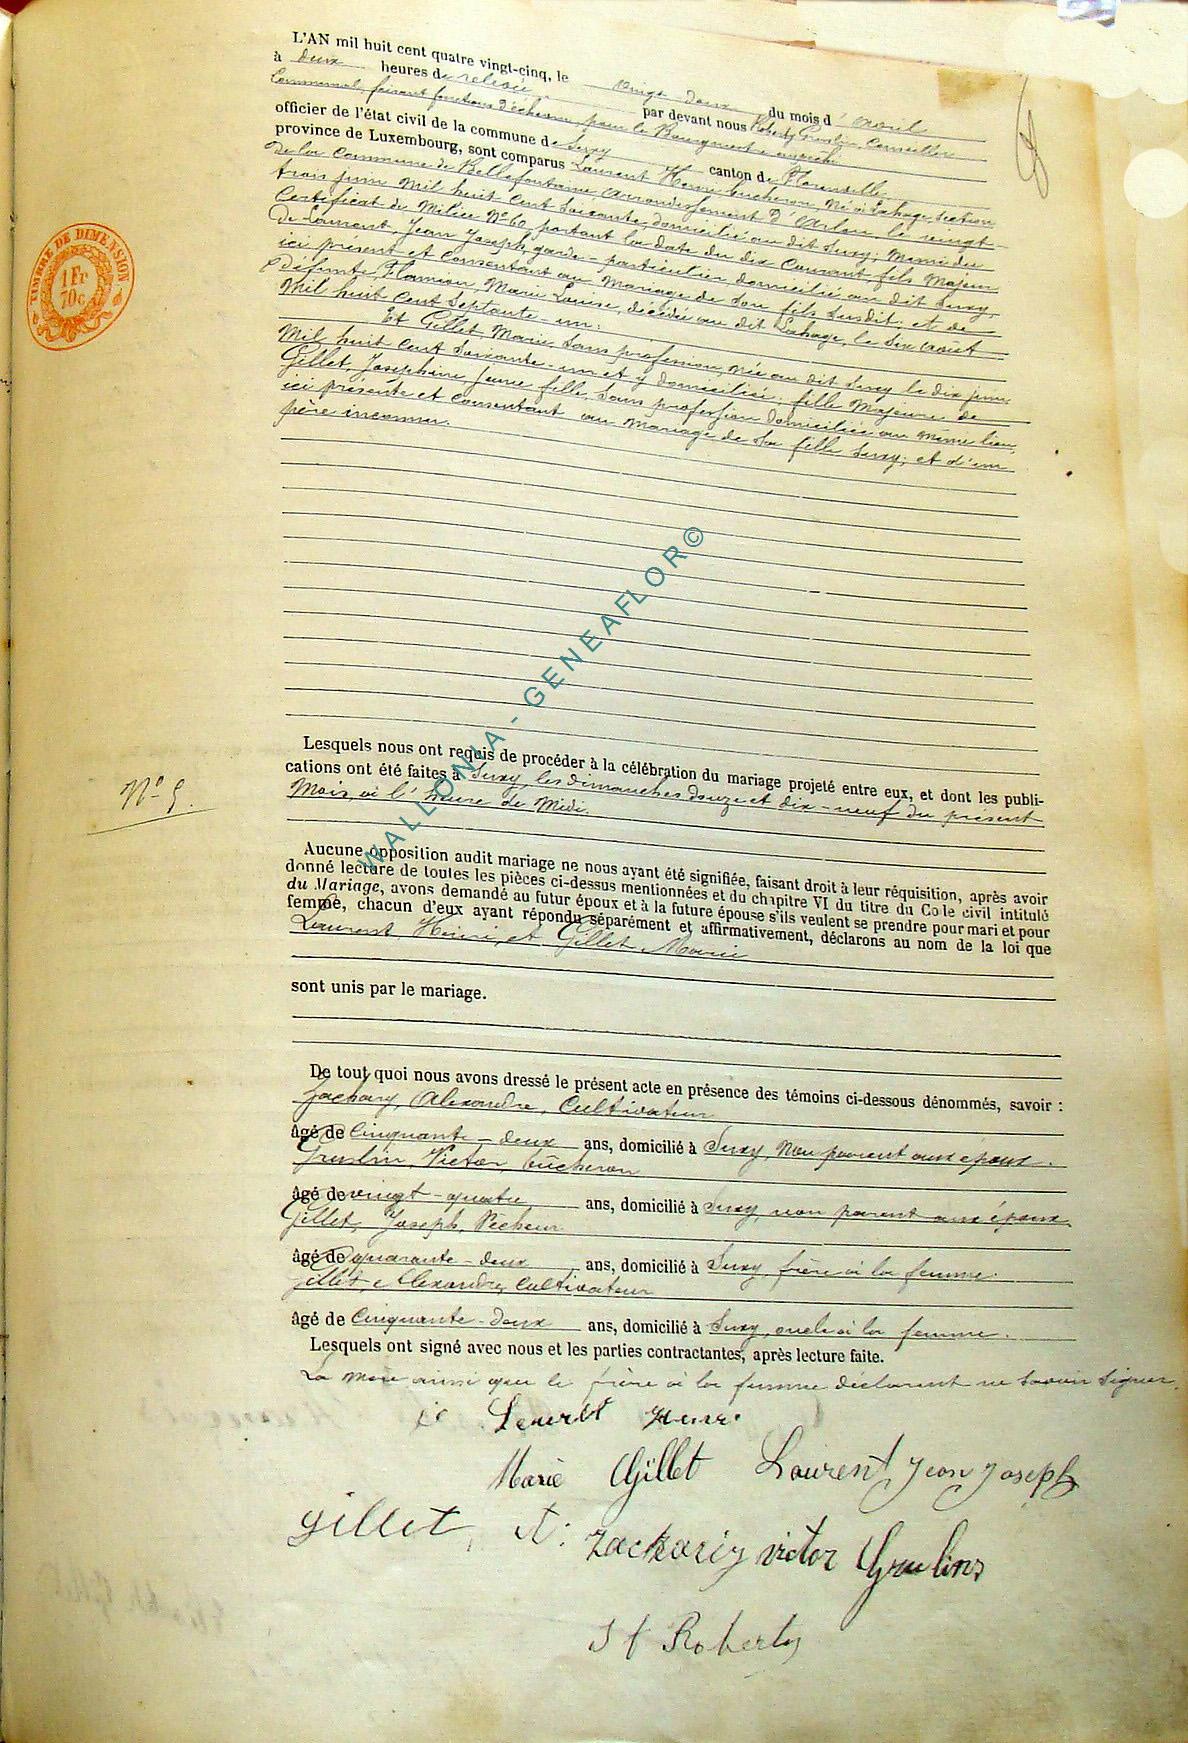 L'AN mil huit cent quatre vingt-cinq, le vingt deux du mois d'avril
à deux heures de relevée par devant nous Conseiller
Communal, faisant fonctions d'échevin, pour le Bourgmestre empêché
officier de l'état civil de la commune de Suxy canton de Florenville
province de Luxembourg, sont comparus Laurent Henri bucheron né à Lahage, section
de la Commune de Bellefontaine, arrondissement d'Arlon le vingt-
trois juin mil huit cent soixante, domicilié au dit Suxy, muni du
Certificat de Milice N° 60 portant la date du dix courant, fils majeur
de Laurent, Jean Joseph, garde-particulier domicilié au dit Suxy,
ici présent et consentant au mariage de son fils susdit, et de
défunte Flamion Marie Louise, décédée au dit Lahage, le six août
mil huit cent septante-un.
Et Gillet, Marie, sans profession, née au dit Suxy le dix juin
mil huit cent soixante-un et y domiciliée, fille majeure de
Gillet, Josephine jeune fille, sans profession domiciliée au même lieu,
ici présente et consentant au mariage de sa fille Suxy; et d'un
père inconnu.
Lesquels nous ont requis de procéder à la célébration du mariage projeté entre eux, et dont les publi-
cations ont été faites à Suxy, les dimanches douze et dix-neuf du présent
Mois, à l'heure de Midi.
N° 5.
Aucune opposition audit mariage ne nous ayant été signifiée, faisant droit à leur réquisition, après avoir
donné lecture de toutes les pièces ci-dessus mentionnées et du chapitre VI du titre du Code civil intitulé
du Mariage, avons demandé au futur époux et à la future épouse s'ils veulent se prendre pour mari et pour
femme, chacun d'eux ayant répondu séparément et affirmativement, déclarons au nom de la loi que
Laurent, Henri, et Gillet, Marie
sont unis par le mariage.
De tout quoi nous avons dressé le présent acte en présence des témoins ci-dessous dénommés, savoir :
Zachary, Alexandre, Cultivateur
âgé de Cinquante-deux ans, domicilié à Suxy, non parent aux époux.
Greslin, Victor, bûcheron
âgé de vingt-quatre ans, domicilié à Suxy, non parent aux époux.
Gillet, Joseph, Pêcheur
âgé de quarante-deux ans, domicilié à Suxy, frère à la femme.
Gillet, Alexandre, Cultivateur
âgé de Cinquante-deux ans, domicilié à Suxy, oncle à la femme.
Lesquels ont signé avec nous et les parties contractantes, après lecture faite.
La mère ainsi que le frère à la femme déclarent ne savoir signer.
Henri
Marie Gillet Laurent Jean Joseph
Gillet, A: Zackariy victor Greslins
TIMBRE DE DIMENSION
1 Fr
70 c
WALLONIA - GENEAFLOR©